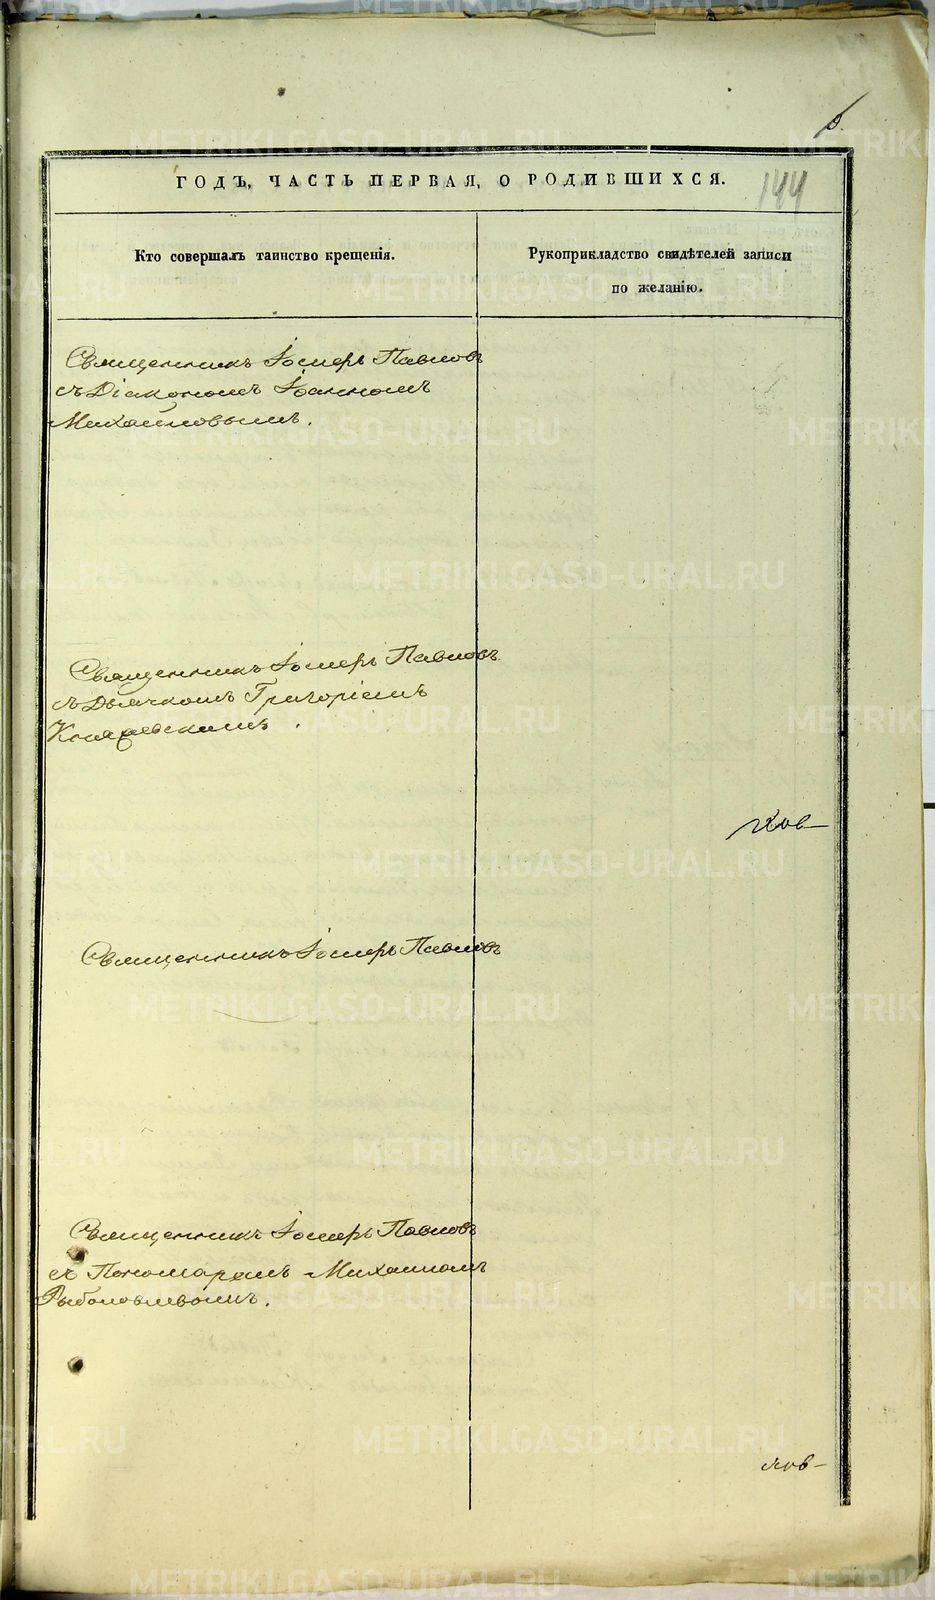 5.
144
ГОДЪ, ЧАСТЬ ПЕРВАЯ, О РОДИВШИХСЯ.
Кто совершалъ таинство крещенія.
Рукоприкладство свидѣтелей записи
по желанію.
Священникъ Іосифъ Павловъ
съ Діакономъ Іоанномъ
Михайловымъ.
Священникъ Іосифъ Павловъ
съ Дьячкомъ Григоріемъ
Священникъ Іосифъ Павловъ
Священникъ Іосифъ Павловъ
съ Пономаремъ Михаиломъ
Рыболовлевымъ.
METRIKI.GASO-URAL.RU